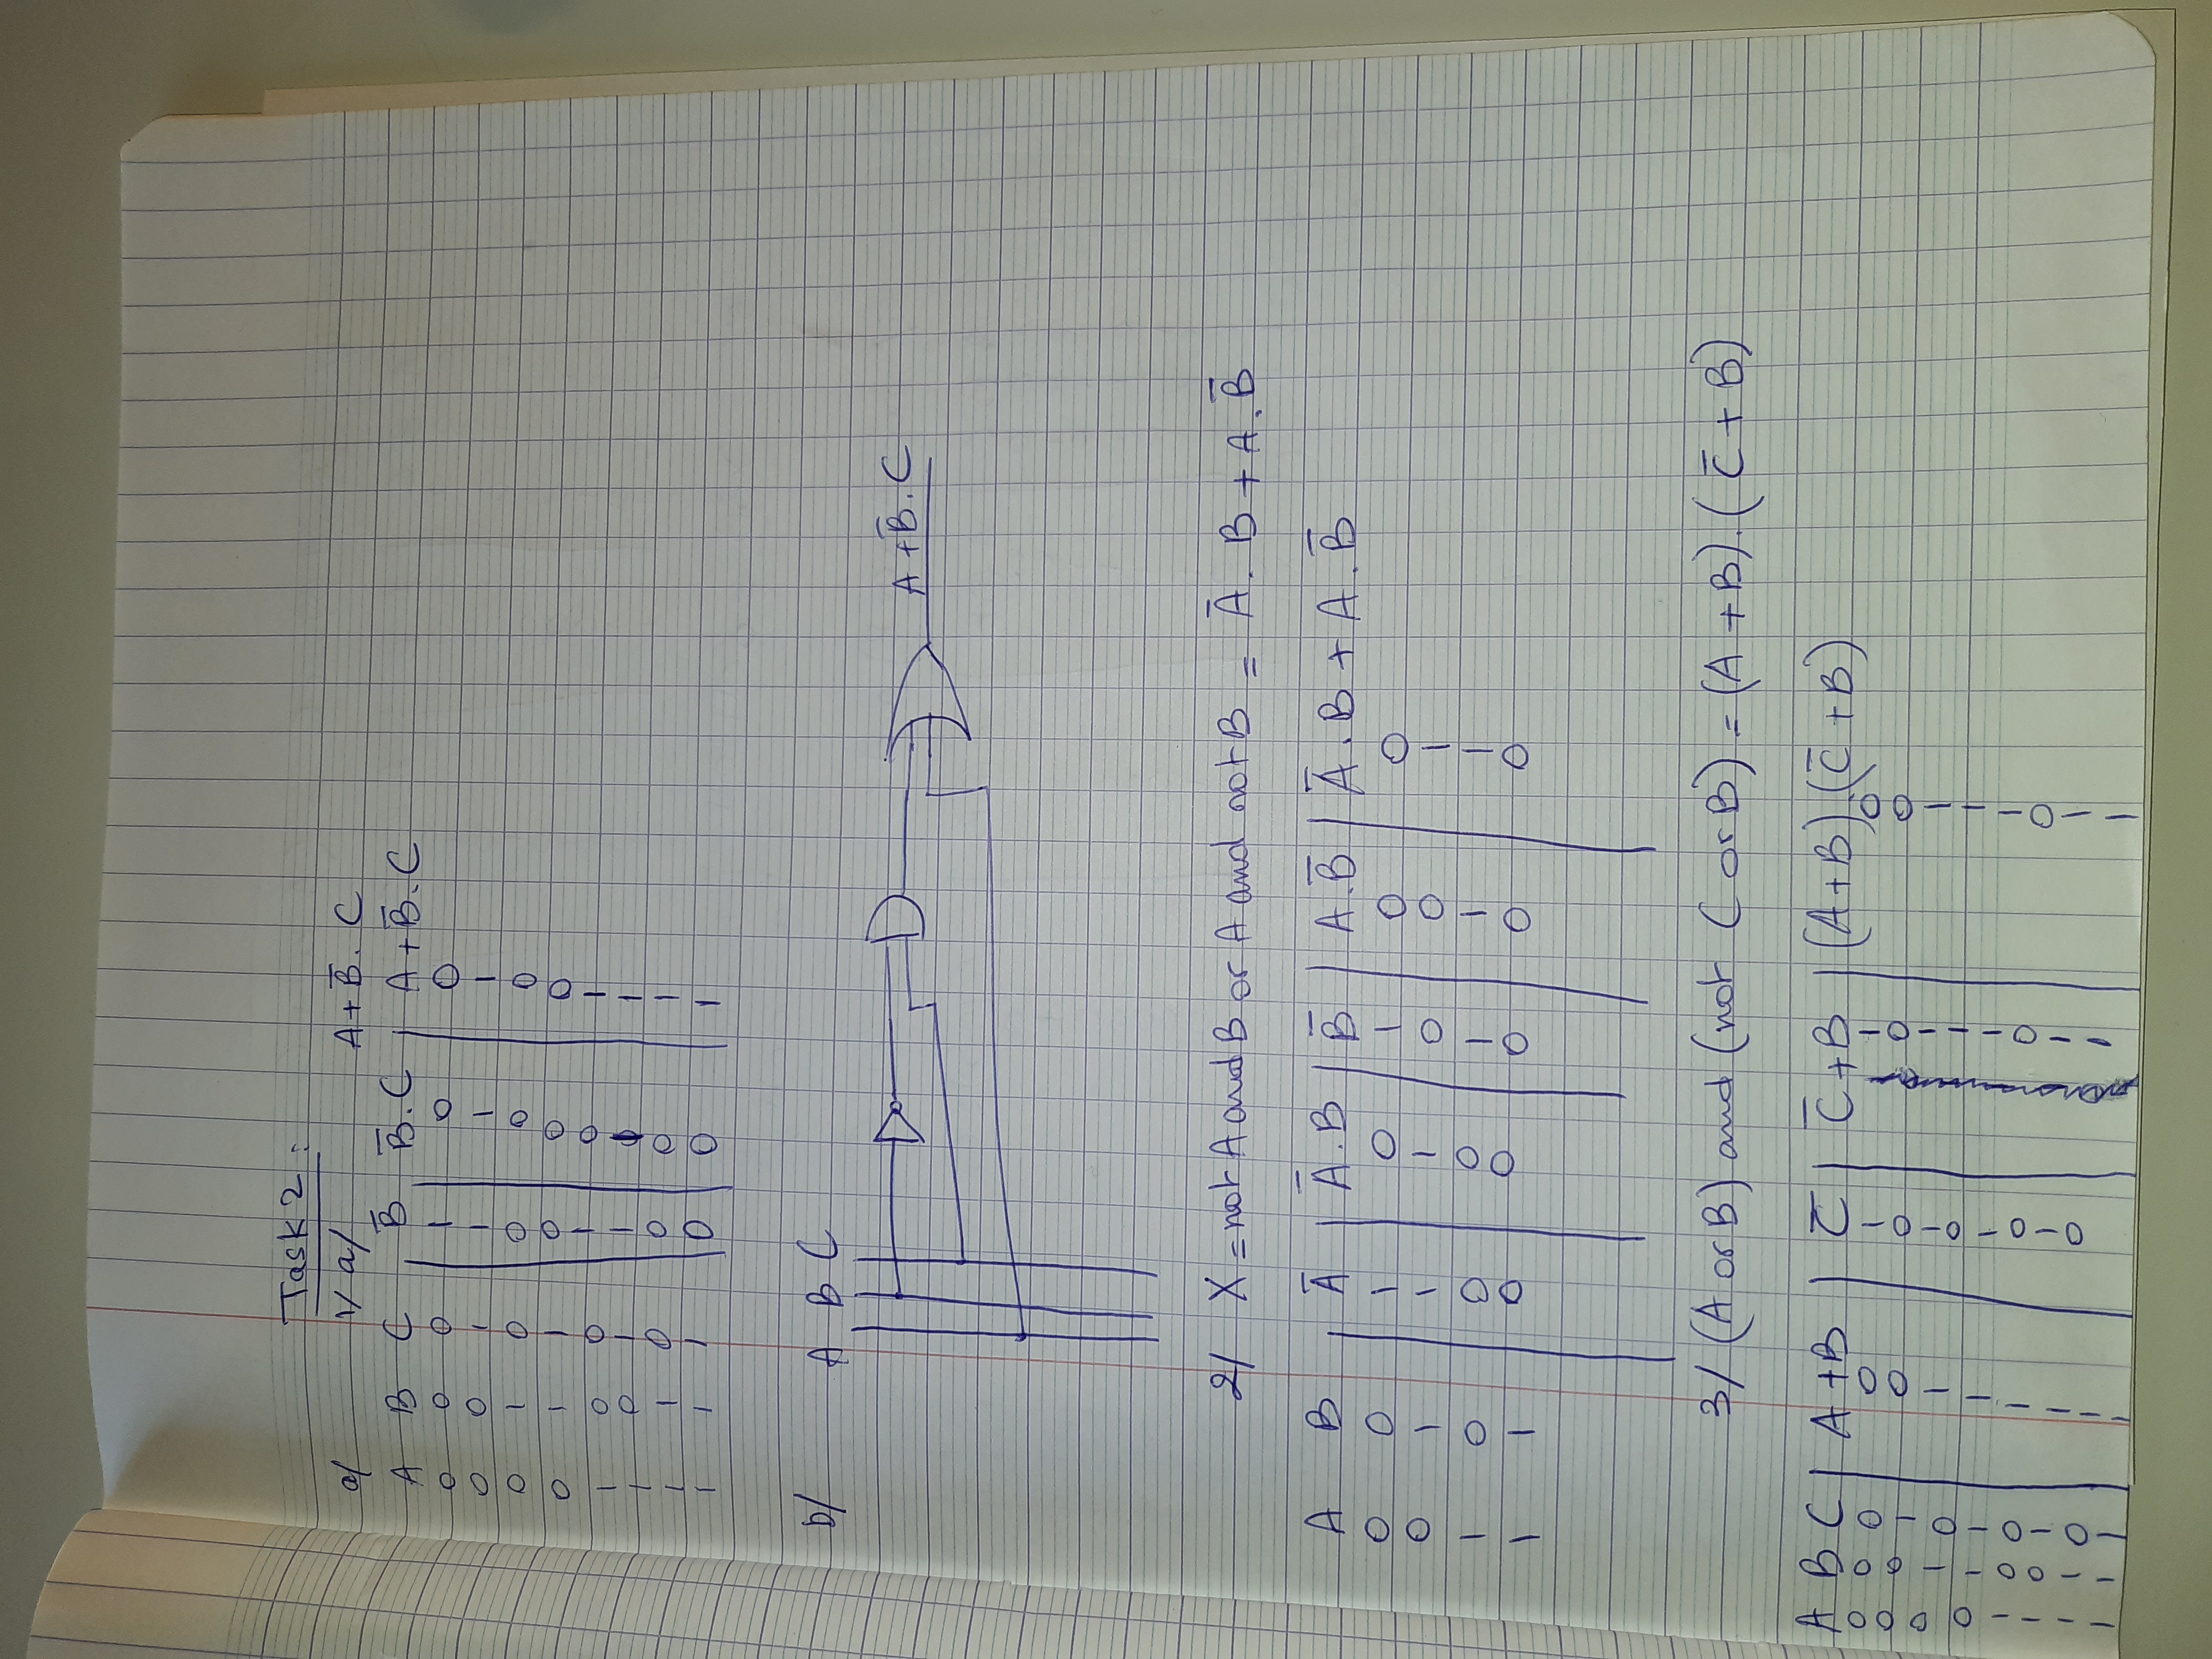 Task 2 :
a/ 1/ a/ A + B̅ . C
A B C B̅ B̅ . C A + B̅ . C
0 0 0 1 0 0
0 0 1 1 1 1
0 1 0 0 0 0
0 1 1 0 0 0
1 0 0 1 0 1
1 0 1 1 1 1
1 1 0 0 0 1
1 1 1 0 0 1
b/ A B C
A + B̅ . C
2/ X = not A and B or A and not B = A̅ . B + A . B̅
A B A̅ A̅ . B B̅ A . B̅ A̅ . B + A . B̅
0 0 1 0 1 0 0
0 1 1 1 0 0 1
1 0 0 0 1 1 1
1 1 0 0 0 0 0
3/ (A or B) and (not C or B) = (A + B) . (C̅ + B)
A B C A + B C̅ C̅ + B (A + B) . (C̅ + B)
0 0 0 0 1 1 0
0 0 1 0 0 0 0
0 1 0 1 1 1 1
0 1 1 1 0 1 1
1 0 0 1 1 1 1
1 0 1 1 0 0 0
1 1 0 1 1 1 1
1 1 1 1 0 1 1